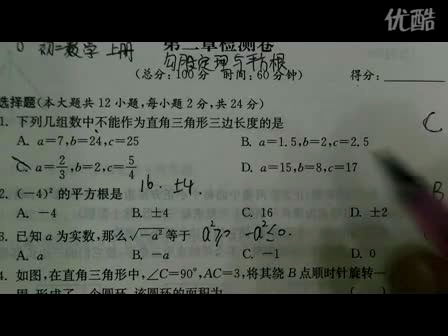 优酷
初二数学 上册
第二章检测卷
勾股定理与平方根
(总分:100分 时间:60分钟) 得分:
选择题(本大题共12小题,每小题2分,共24分)
1. 下列几组数中不能作为直角三角形三边长度的是 C
A. a=7,b=24,c=25 B. a=1.5,b=2,c=2.5
C. a=2/3,b=2,c=5/4 D. a=15,b=8,c=17
2. (-4)²的平方根是 16. ±4. B
A. -4 B. ±4 C. 16 D. ±2
3. 已知a为实数,那么√-a²等于 a²≥ -a²≤0.
A. a B. -a C. -1 D. 0
4. 如图,在直角三角形中,∠C=90°,AC=3,将其绕B点顺时针旋转一
周,形成了一个圆环,该圆环的面积为